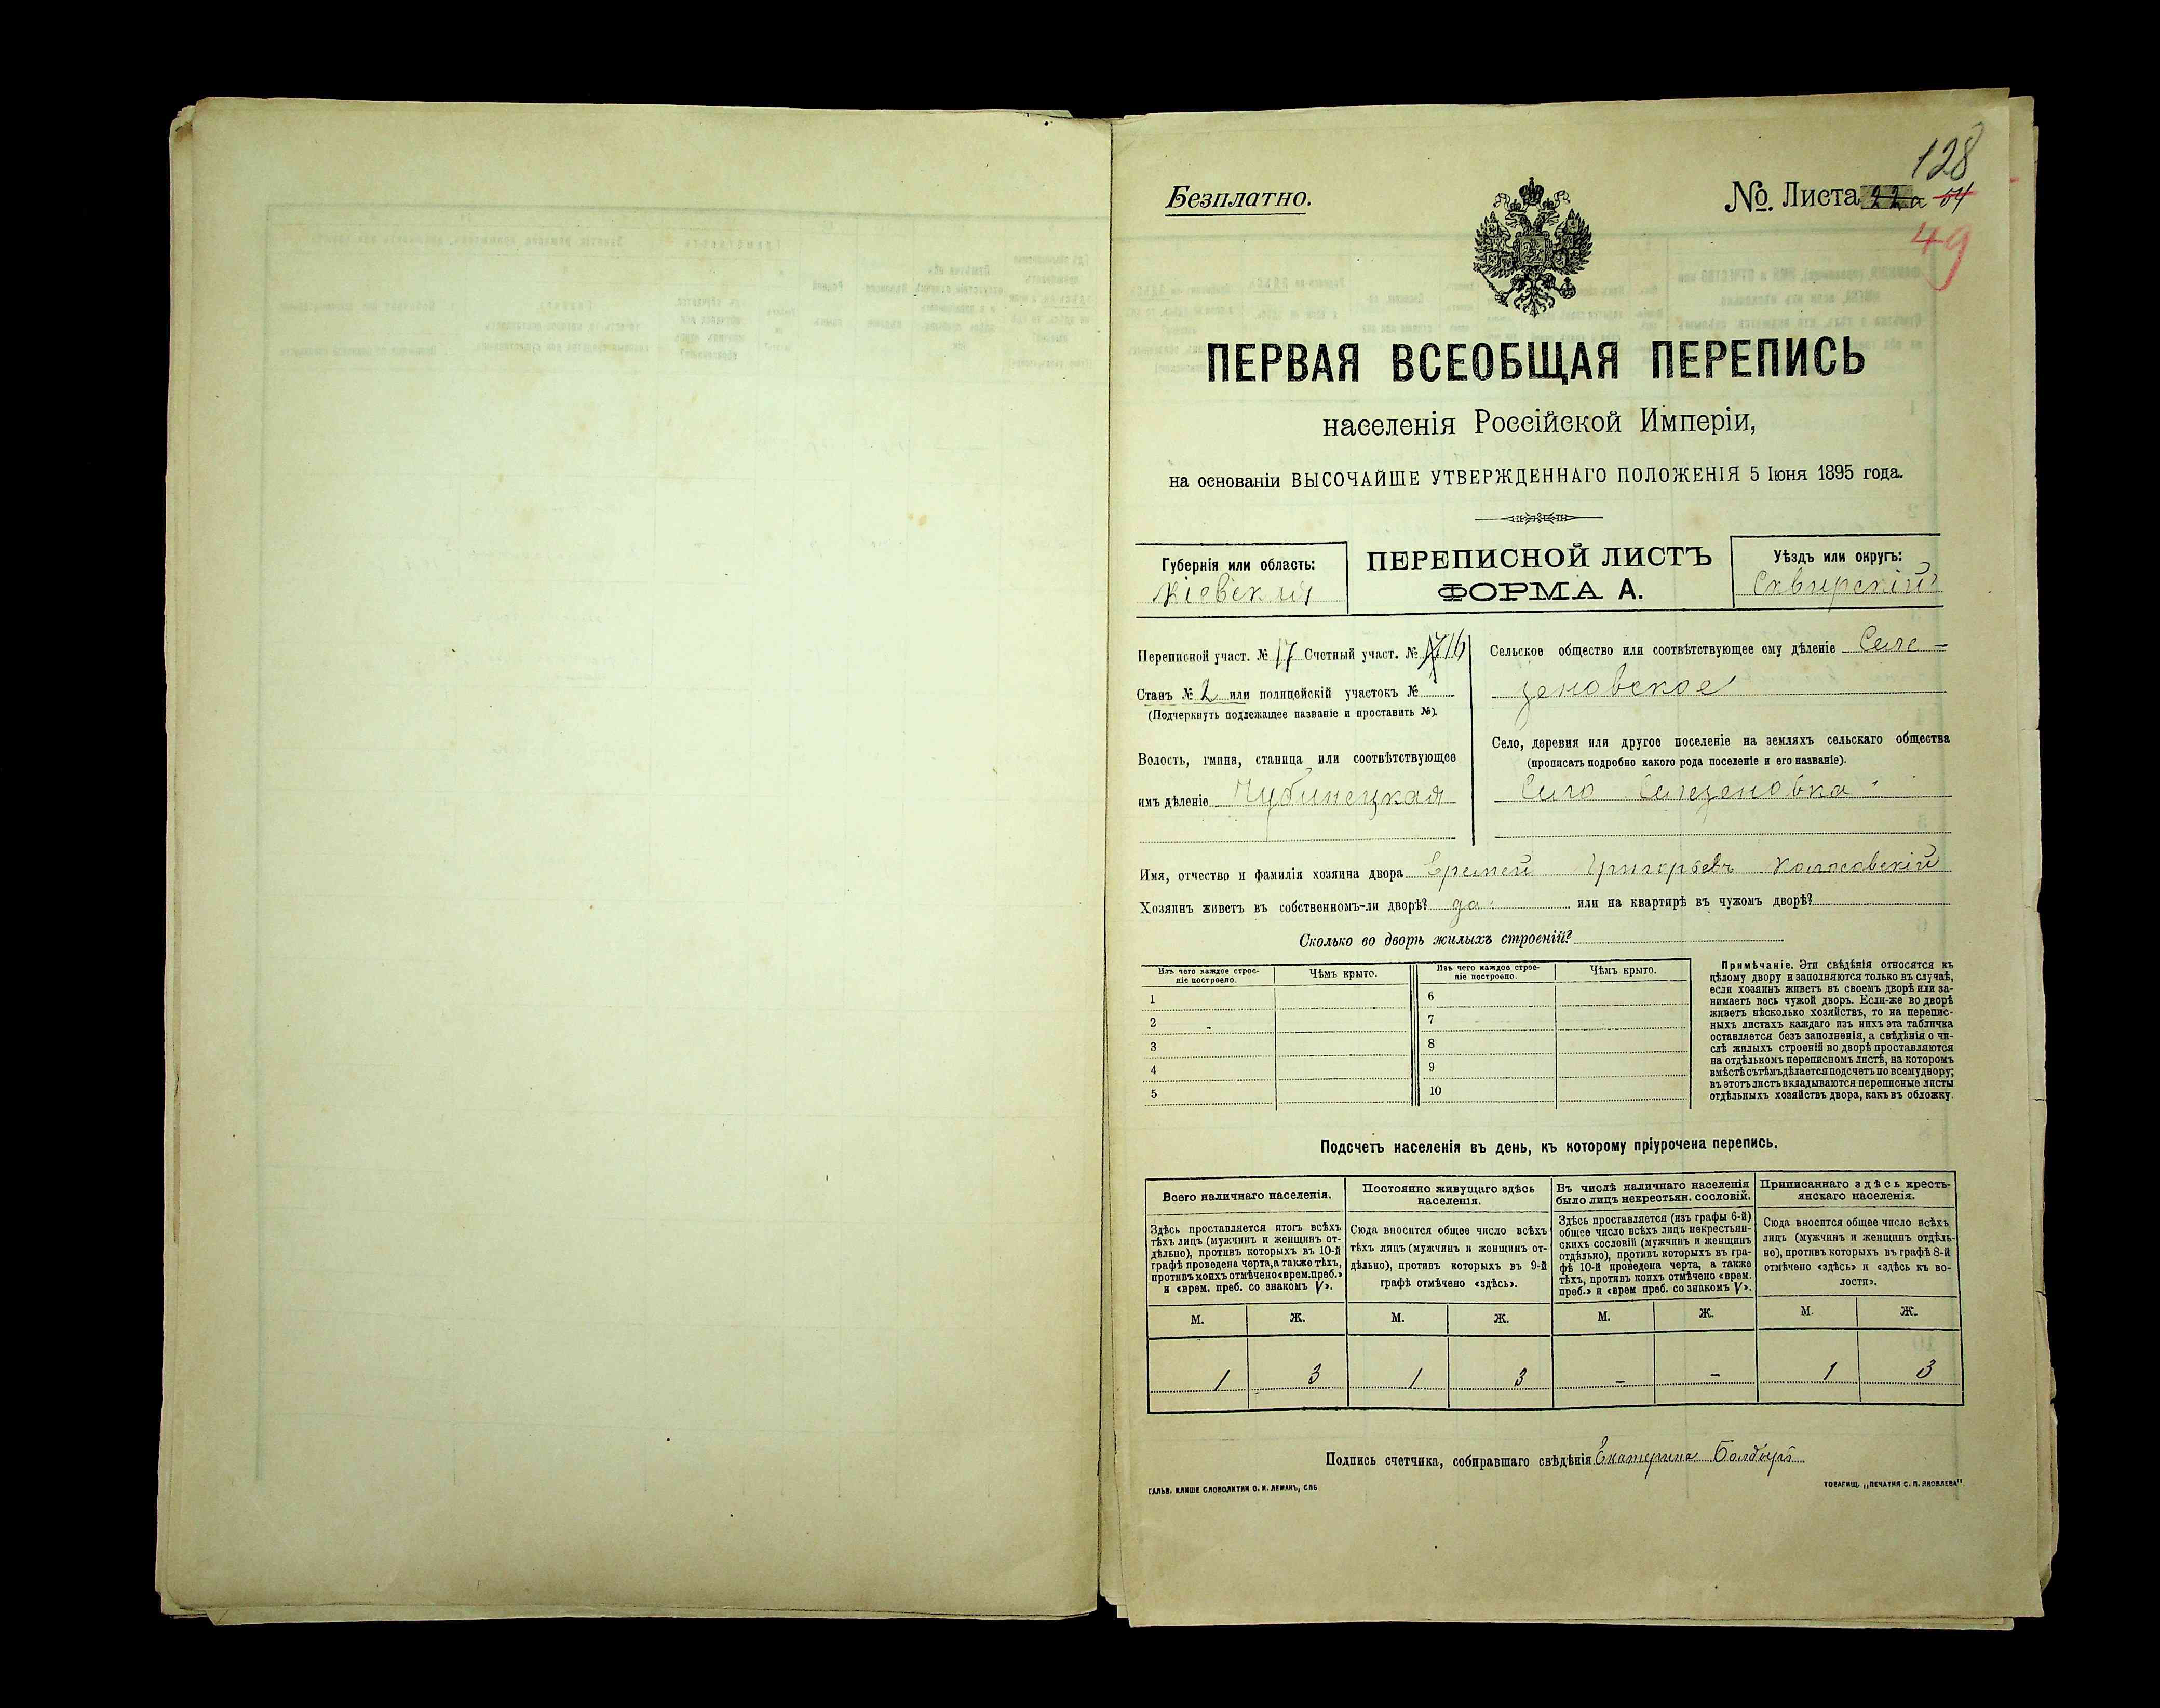 128
Безплатно.
№ Листа 22а 54
49
ПЕРВАЯ ВСЕОБЩАЯ ПЕРЕПИСЬ
населенія Россійской Имперіи,
на основаніи ВЫСОЧАЙШЕ УТВЕРЖДЕННАГО ПОЛОЖЕНІЯ 5 Іюня 1895 года.
Губернія или область:
Кіевская
ПЕРЕПИСНОЙ ЛИСТЪ
ФОРМА А.
Уѣздъ или округъ:
Сквирскій
Переписной участ. № 17 Счетный участ. № 16
Станъ № 2 или полицейскій участокъ №
(Подчеркнуть подлежащее названіе и проставить №).
Волость, гмина, станица или соотвѣтствующее
имъ дѣленіе Чубинецкая
Сельское общество или соотвѣтствующее ему дѣленіе Селе-
зеновское
Село, деревня или другое поселеніе на земляхъ сельскаго общества
(прописать подробно какого рода поселеніе и его названіе).
Село Селезеновка
Имя, отчество и фамилія хозяина двора Еремей Григорьевъ Колосовскій
Хозяинъ живетъ въ собственномъ-ли дворѣ? да. или на квартирѣ въ чужомъ дворѣ?
Сколько во дворѣ жилыхъ строеній?
Изъ чего каждое строе-
ніе построено.
Чѣмъ крыто.
Изъ чего каждое строе-
ніе построено.
Чѣмъ крыто.
1 6
2 7
3 8
4 9
5 10
Примѣчаніе. Эти свѣдѣнія относятся къ
цѣлому двору и заполняются только въ случаѣ,
если хозяинъ живетъ въ своемъ дворѣ или за-
нимаетъ весь чужой дворъ. Если-же во дворѣ
живетъ нѣсколько хозяйствъ, то на перепис-
ныхъ листахъ каждаго изъ нихъ эта табличка
оставляется безъ заполненія, а свѣдѣнія о чи-
слѣ жилыхъ строеній во дворѣ проставляются
на отдѣльномъ переписномъ листѣ, на которомъ
вмѣстѣ съ тѣмъ дѣлается подсчетъ по всему двору;
въ этотъ листъ вкладываются переписные листы
отдѣльныхъ хозяйствъ двора, какъ въ обложку.
Подсчетъ населенія въ день, къ которому пріурочена перепись.
Всего наличнаго населенія.
Здѣсь проставляется итогъ всѣхъ
тѣхъ лицъ (мужчинъ и женщинъ от-
дѣльно), противъ которыхъ въ 10-й
графѣ проведена черта, а также тѣхъ,
противъ коихъ отмѣчено «врем. преб.»
и «врем. преб. со знакомъ V».
Постоянно живущаго здѣсь
населенія.
Сюда вносится общее число всѣхъ
тѣхъ лицъ (мужчинъ и женщинъ от-
дѣльно), противъ которыхъ въ 9-й
графѣ отмѣчено «здѣсь».
Въ числѣ наличнаго населенія
было лицъ некрестьян. сословій.
Здѣсь проставляется (изъ графы 6-й)
общее число всѣхъ лицъ некрестьян-
скихъ сословій (мужчинъ и женщинъ
отдѣльно), противъ которыхъ въ гра-
фѣ 10-й проведена черта, а также
тѣхъ, противъ коихъ отмѣчено «врем.
преб.» и «врем преб. со знакомъ V».
Приписаннаго здѣсь кресть-
янскаго населенія.
Сюда вносится общее число всѣхъ
лицъ (мужчинъ и женщинъ отдѣль-
но), противъ которыхъ въ графѣ 8-й
отмѣчено «здѣсь» и «здѣсь къ во-
лости».
М. Ж. М. Ж. М. Ж. М. Ж.
1 3 1 3 - - 1 3
Подпись счетчика, собиравшаго свѣдѣнія Екатерина Болдыръ
ГАЛЬВ. КЛИШЕ СЛОВОЛИТНИ О. И. ЛЕМАНЪ, СПБ
ТОВАРИЩ. „ПЕЧАТНЯ С. П. ЯКОВЛЕВА"